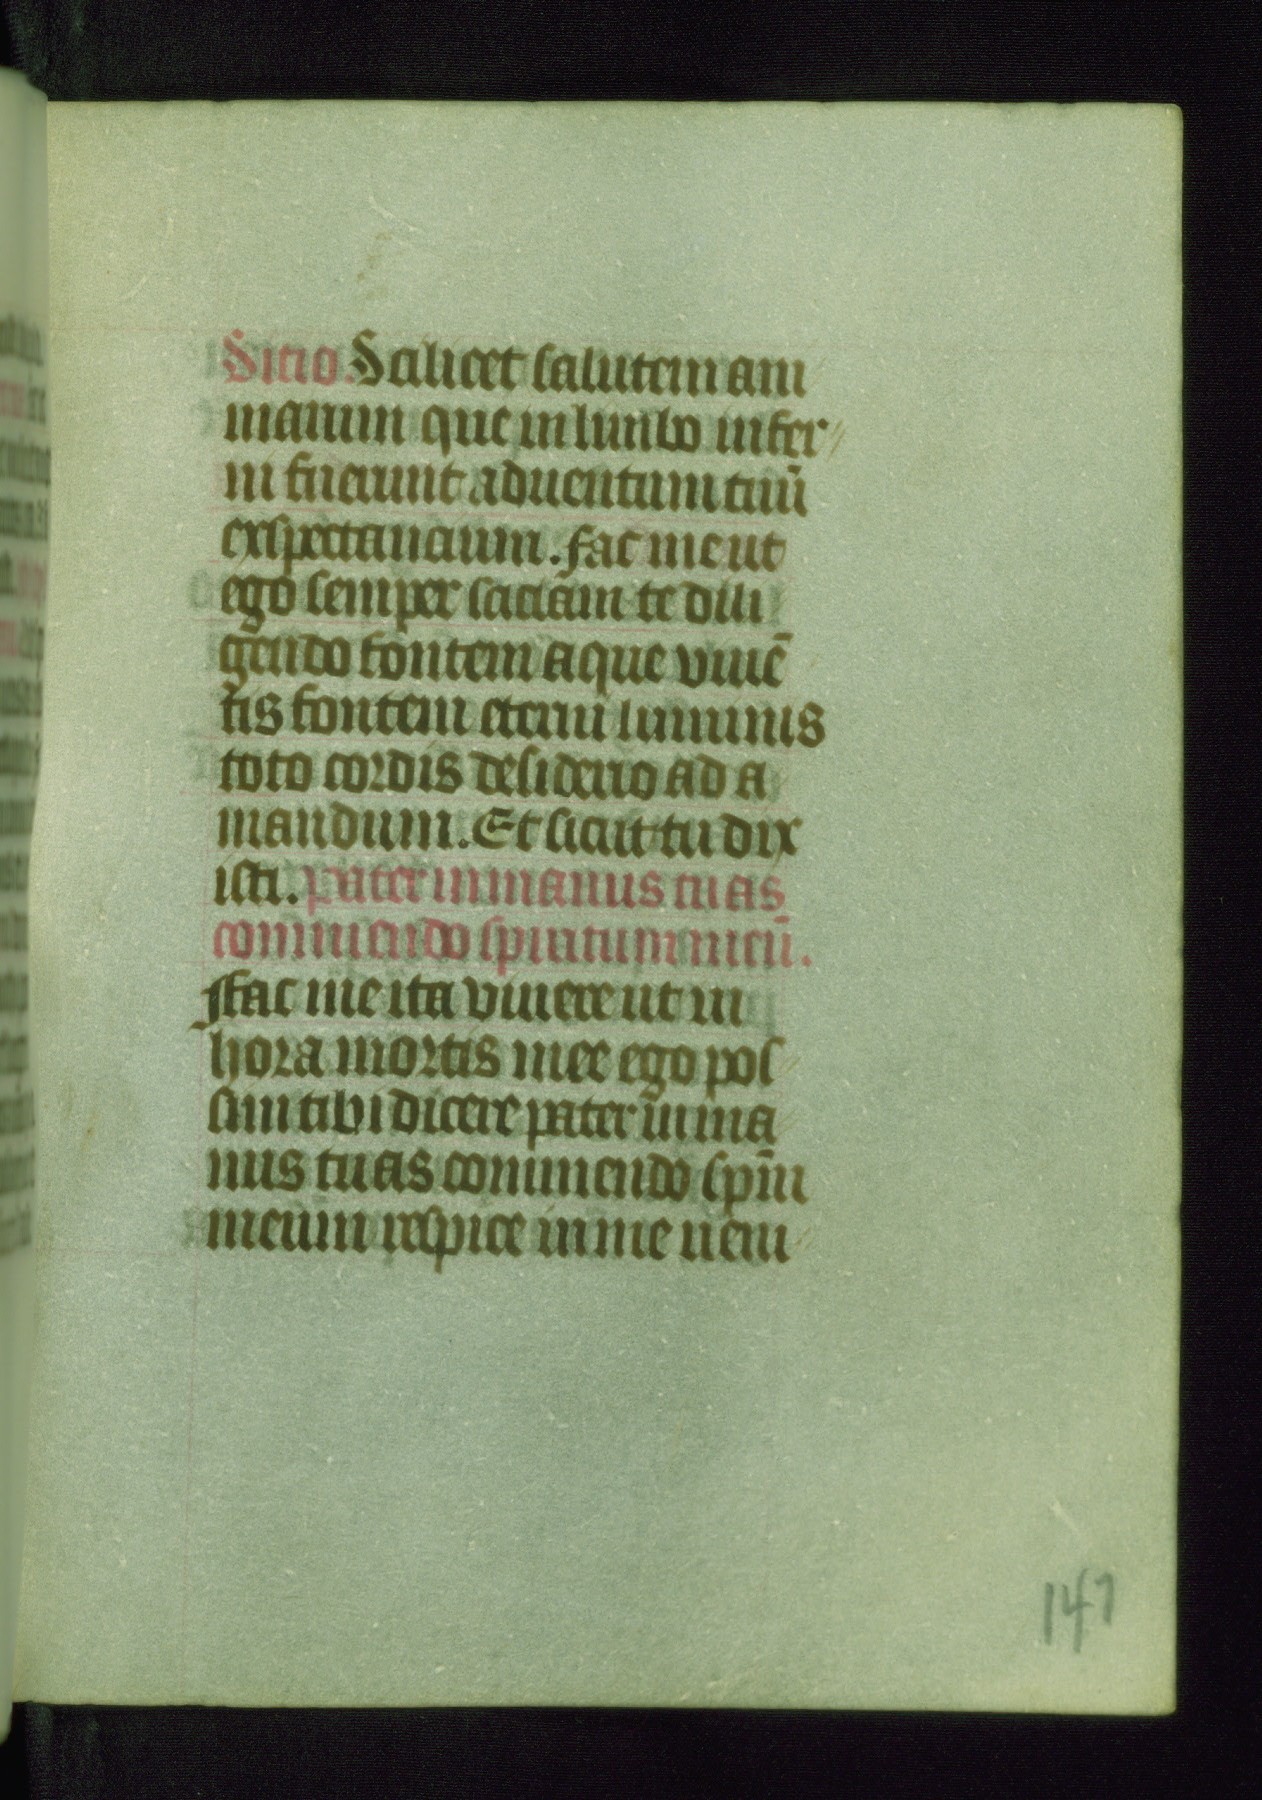 Sicio. Scilicet salutem ani
marum que in limbo infer
ni fuerunt aduentum tuū
exspectancium. fac me ut
ego semper saciam te dili
gendo fontem aque viuē
tis fontem eterni luminis
toto cordis desiderio ad a
mandum. Et sicut tu dix
isti. pater in manus tuas
commendo spiritum meū.
ffac me ita viuere ut in
hora mortis mee ego pos
sim tibi dicere pater in ma
nus tuas commendo spm̄
meum respice in me ueni
147